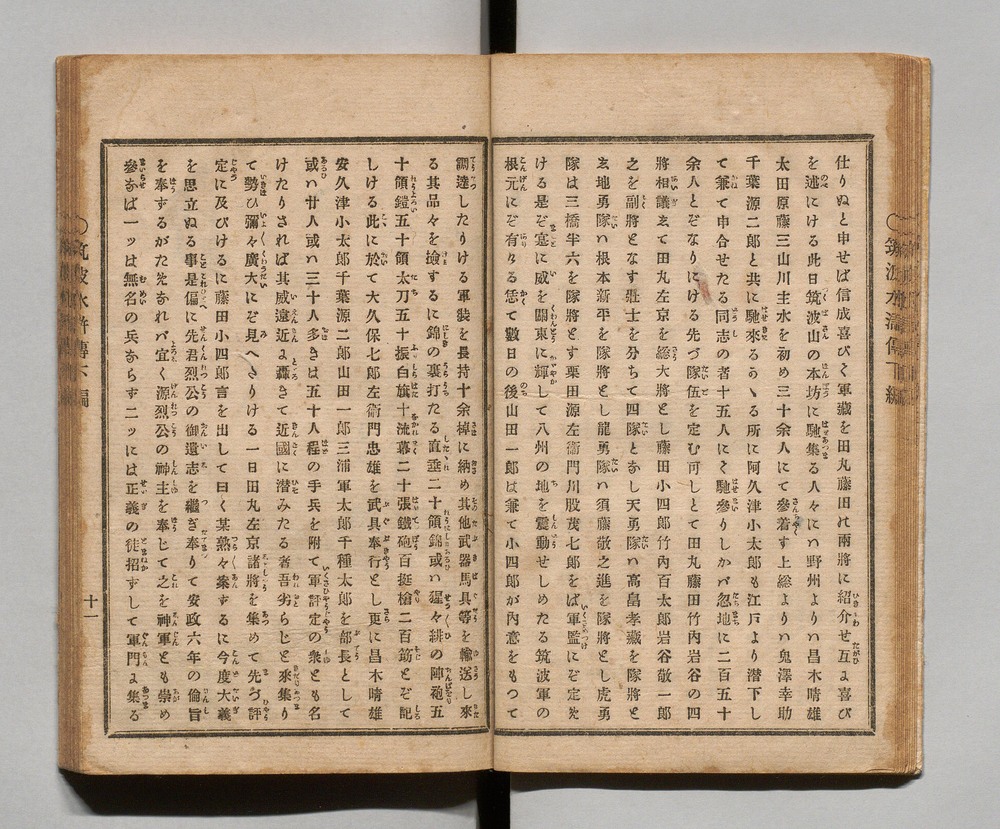 仕りぬと申せば信成喜びて軍藏を田丸藤田の兩將に紹介せ互に喜び
を述にける此日筑波山の本坊に馳集る人々にハ野州よりハ昌木晴雄
太田原藤三山川主水を初め三十余人にて參着す上総よりハ鬼澤幸助
千葉源二郎と共に馳來るかゝる所に阿久津小太郎も江戸より潜下し
て兼て申合せたる同志の者十五人にて馳參りしかバ忽地に二百五十
余人とぞなりにける先づ隊伍を定む可しとて田丸藤田竹内岩谷の四
將相議ゑて田丸左京を総大將とし藤田小四郎竹内百太郎岩谷敬一郎
之を副將となす壯士を分ちて四隊となし天勇隊ハ高畠孝藏を隊將と
ゑ地勇隊ハ根本新平を隊將とし龍勇隊ハ須藤敬之進を隊將とし虎勇
隊は三橋半六を隊將とす栗田源左衞門川股茂七郎をば軍監にぞ定め
ける是ぞ寔に威を關東に輝して八州の地を震動せしめたる筑波軍の
根元にぞ有ける恁て數日の後山田一郎は兼て小四郎が内意をもつて
調達したりける軍装を長持十余棹に納め其他武器馬具等を輸送し來
る其品々を撿するに錦の裏打たる直垂二十領錦或ハ猩々緋の陣砲五
十領鎧五十領太刀五十振白旗十流幕二十張鐵砲百挺槍二百筋とぞ記
しける此に於て大久保七郎左衞門忠雄を武具奉行とし更に昌木晴雄
安久津小太郎千葉源二郎山田一郎三浦軍太郎千種太郎を部長として
或ハ廿人或ハ三十人多きは五十人程の手兵を附て軍評定の衆とも名
けたりされば其威遠近に轟きて近國に潜みたる者吾劣らじと來集り
て勢ひ彌々廣大にぞ見へたりける一日田丸左京諸將を集めて先づ評
定に及びけるに藤田小四郎言を出して曰く某熟々案するに今度大義
を思立ぬる事是偏に先君烈公の御遺志を繼ぎ奉りて安政六年の倫旨
を奉するがためなれバ宜く源烈公の神主を奉じて之を神軍とも崇め
參なば一ツは無名の兵ならず二ツには正義の徒招すして軍門に集る
十一
筑波水滸傳下編
筑波水滸傳下編